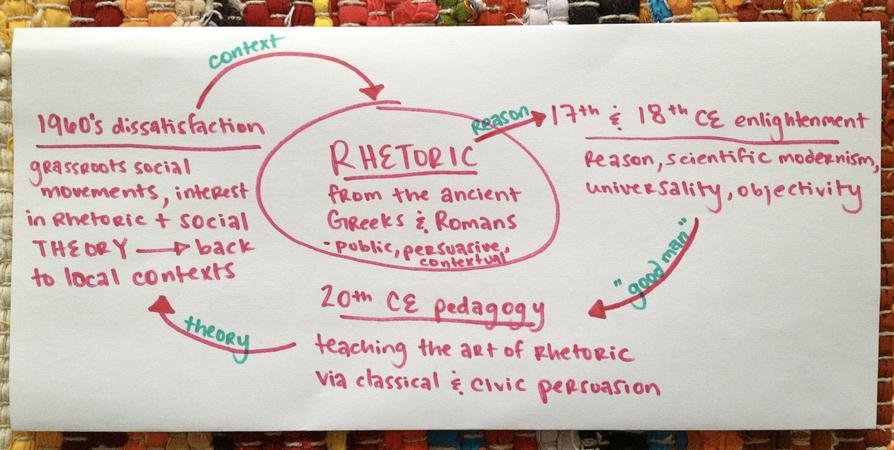 context
1960's dissatisfaction
grassroots social
movements, interest
in Rhetoric + social
THEORY → back
to local contexts
RHETORIC
from the ancient
Greeks & Romans
- public, persuasive,
contextual
Reason
17th & 18th CE enlightenment
Reason, scientific modernism,
universality, objectivity
"good man"
20th CE pedagogy
teaching the art of Rhetoric
via classical & civic persuasion
theory